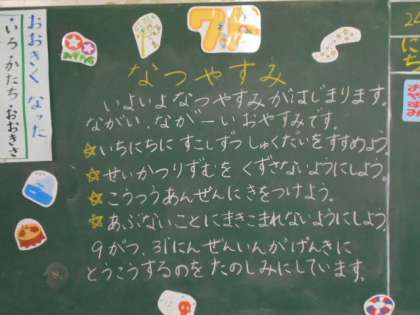 おおきく なった
いろ・かたち・おおきさ
7がつ
なつやすみ
いよいよ なつやすみが はじまります。
ながい、ながーい おやすみです。
☆いちにちに すこしずつ しゅくだいを すすめよう。
☆せいかつりずむを くずさないようにしよう。
☆こうつうあんぜんに きをつけよう。
☆あぶないことに まきこまれないようにしよう。
9がつ、31にんぜんいんが げんきに
とうこうするのを たのしみにしています。
にち